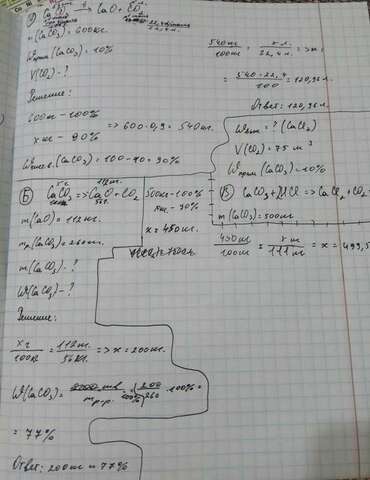 CaCO₃ =t=> CaO + CO₂
m(CaCO₃) = 600кг.
Wприм(CaCO₃) = 10%
V(CO₂) - ?
Решение:
600т - 100%
x т - 90%
=> 600·0,9 = 540т.
Wчист.(CaCO₃) = 100-10 = 90%
540т / 100т = x л. / 22,4 л. => x =
= 540·22,4 / 100 = 120,96 л.
Ответ: 120,96 л.
Б) CaCO₃ => CaO + CO₂
x т
112т.
m(CaO) = 112т.
m(CaCO₃) = 260т.
m(CaCO₃) - ?
W(CaCO₃) - ?
Решение:
x т / 100т = 112т. / 56т. => x = 200т.
W(CaCO₃) = 200 / 260 · 100% =
= 77%
Ответ: 200т и 77%
500т - 100%
x т. - 90%
x = 450т
(CaCl₂)
V(CO₂) = 75 м³
Wприм(CaCO₃) = 10%
В) CaCO₃ + 2HCl => CaCl₂ + CO₂
m(CaCO₃) = 500т
450т / 100т = x т / 111т => x = 499,5